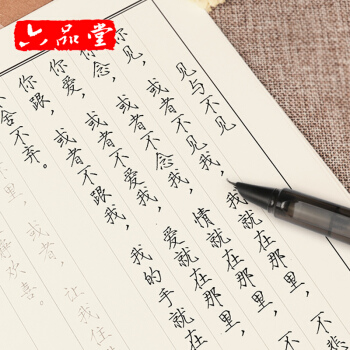 六品堂
见与不见
你见，或者不见我，我就在那里，不悲
你念，或者不念我，情就在那里，不
你爱，或者不爱我，爱就在那里，
你跟，或者不跟我，我的手就在
舍不弃。
里，或者，让我住
欢喜。